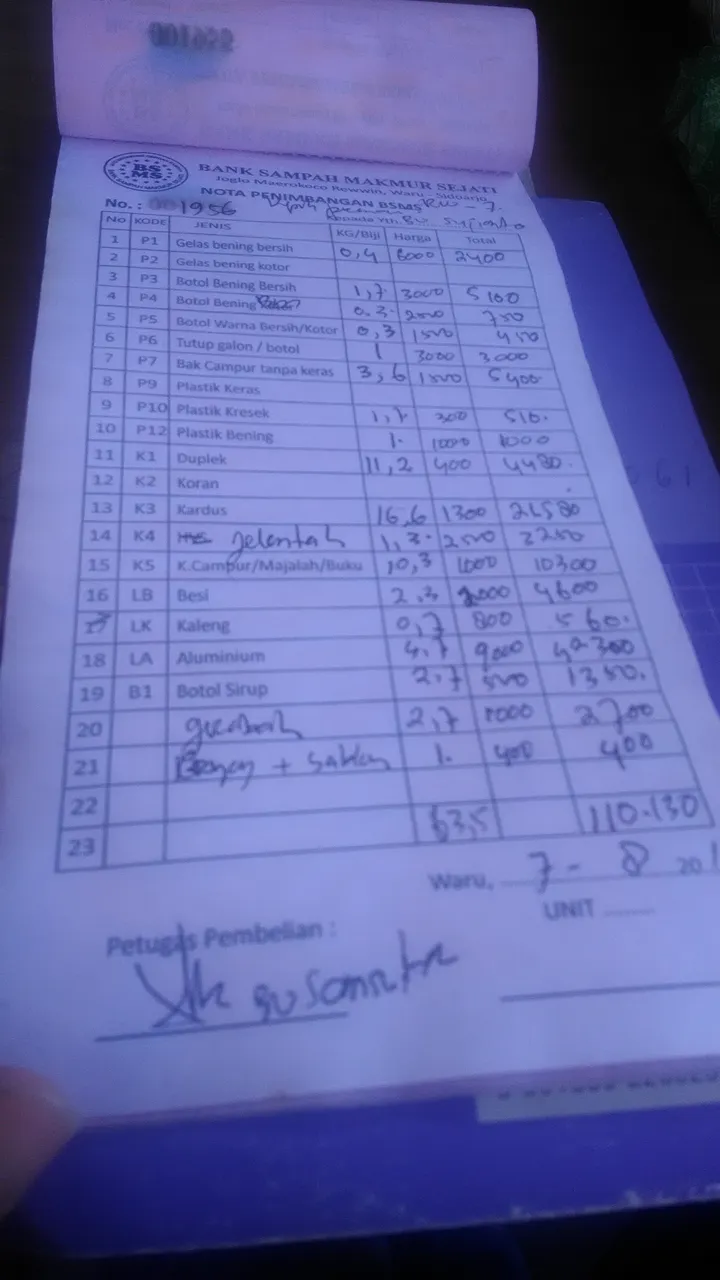 BS
MS
BANK SAMPAH MAKMUR SEJATI
Joglo Maerokoco Rewwin, Waru - Sidoarjo
NOTA PENIMBANGAN BSMS
No. : 001956
Kepada Yth.
No KODE JENIS KG/Biji Harga Total
1 P1 Gelas bening bersih 0,4 6000 2400
2 P2 Gelas bening kotor
3 P3 Botol Bening Bersih 1,7 3000 5100
4 P4 Botol Bening 0.3 2500 750
5 P5 Botol Warna Bersih/Kotor 0,3 1500 450
6 P6 Tutup galon / botol 1 3000 3.000
7 P7 Bak Campur tanpa keras 3,6 1500 5400
8 P9 Plastik Keras
9 P10 Plastik Kresek 1,7 300 510.
10 P12 Plastik Bening 1. 1000 1000
11 K1 Duplek 11,2 400 4480.
12 K2 Koran
13 K3 Kardus 16,6 1300 21580
14 K4 1,3. 2500
15 K5 K.Campur/Majalah/Buku 10,3 1000 10300
16 LB Besi 2.3 2000 4600
17 LK Kaleng 0,7 800 560.
18 LA Aluminium 4,7 9000 42300
19 B1 Botol Sirup 2.7 500 1350.
20 2,7 1000 2700
21 1. 400 400
22
23 63,5 110.130
Waru, 7 - 8 201
UNIT
Petugas Pembelian :